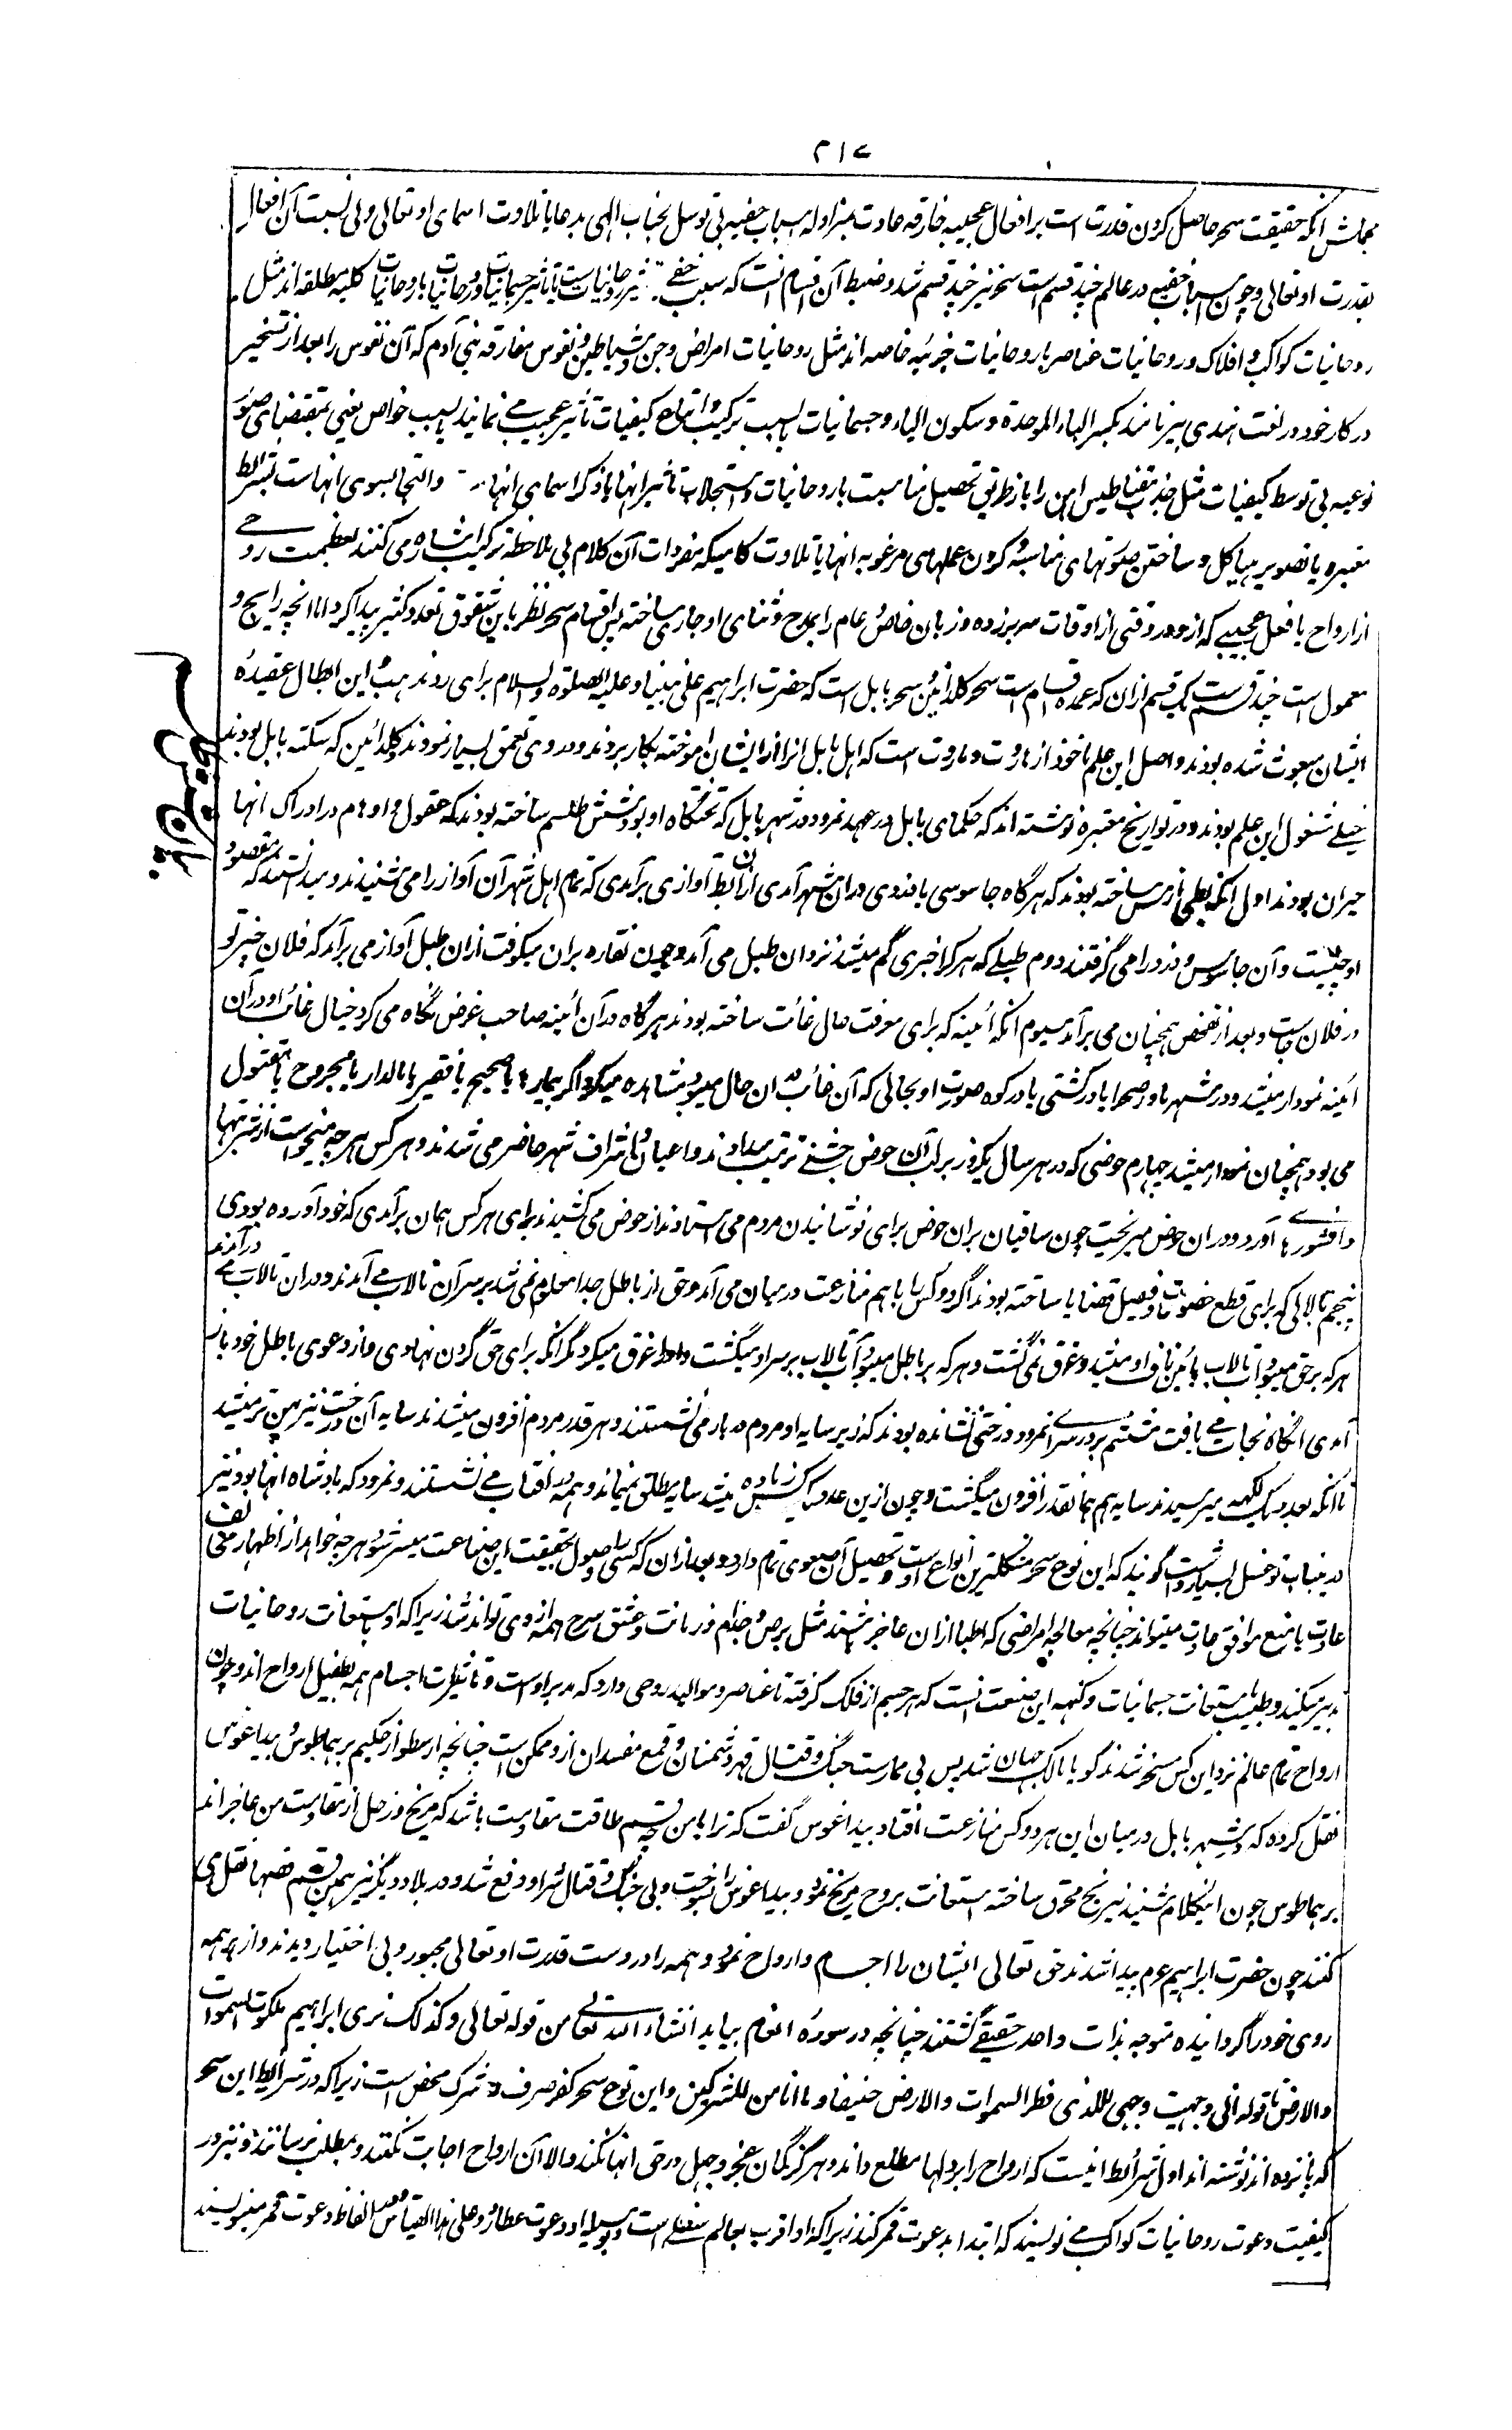 ۳۱۷
مجملش آنکه حقیقت سحر حاصل کردن قدرت است بر افعال عجیبه خارقه عادت بمزاوله اسباب خفیه بی توسل بجناب الهی بدعا یا تلاوت اسمای او تعالی و بی نسبت آن افعال
بقدرت او تعالی و چون اسباب خفیه در عالم چند قسم است سحر نیز چند قسم شد و ضبط آن اقسام آنست که سبب خفی تاثیر روحانیات است یا تاثیر جسمانیات و روحانیات یا روحانیات کلیه مطلقه اند مثل
روحانیات کواکب و افلاک و روحانیات عناصر یا روحانیات جزئیه خاصه اند مثل روحانیات امراض و جن و شیاطین و نفوس مفارقه بنی آدم که آن نفوس را بعد از تسخیر
در کار خود در لغت هندی بیر نامند بکسر الباء الموحدة و سکون الیاء و جسمانیات یا بسبب ترکیب و امتزاج کیفیات تاثیر عجیب می نمایند یا بسبب خواص یعنی بمقتضای صور
نوعیه بی توسط کیفیات مثل جذب مقناطیس آهن را باز طریق تحصیل مناسبت با روحانیات و استجلاب تاثیر انها یا ذکر اسمای انها و التجا بسوی انها است بشرائط
معتبره یا تصویر هیاکل و ساختن صورتهای مناسبه و کردن عملهای مرغوبه انها یا تلاوت کلامیکه مفردات آن کلام بی ملاحظه ترکیب اشاره می کنند بعظمت روحی
از ارواح یا فعل عجیبی که از و در وقتی از اوقات سر بر زده و زبان خاص و عام را بمدح و ثنای او جاری ساخته پس اقسام سحر نظر باین شقوق تعدد کثیر پیدا کرد اما انچه رایج و
معمول است چند قسم است یک قسم از ان که عمده اقسام است سحر کلدانیین سحر بابل است که حضرت ابراهیم علی نبینا و علیه الصلوة والسلام برای رد مذهب و این ابطال عقیده
ایشان مبعوث شده بودند و اصل این علم ماخوذ از هاروت و ماروت است که اهل بابل انرا از ایشان اموخته بکار بردند و در وی تعمق بسیار نمودند و کلدانیین که سکنه بابل بودند
خیلی مشغول این علم بودند و در تواریخ معتبره نوشته اند که حکمای بابل در عهد نمرود در شهر بابل که تختگاه او بود شش طلسم ساخته بودند که عقول و اوهام در ادراک انها
حیران بودند اول آنکه بطی از مس ساخته بودند که هرگاه جاسوسی یا دزدی در ان شهر آمدی از ان بط آوازی برآمدی که تمام اهل شهر آن آواز را می شنیدند و میدانستند که مقصود
او چیست و آن جاسوس و دزد را می گرفتند دوم طبلی که هر کرا خبری گم میشد نزد ان طبل می آمد و چون نقاره بران میکوفت ازان طبل آواز می برآمد که فلان چیز تو
در فلان جاست و بعد از تفحص همچنان می برآمد سیوم انکه آئینه که برای معرفت حال غائب ساخته بودند هرگاه در آن آئینه صاحب غرض نگاه می کرد خیال غائب او در آن
آئینه نمودار میشد و در شهر یا در صحرا یا در کشتی یا در کوه صورت او بحالی که آن غائب در ان حال میبود مشاهده میکرد اگر بیمار یا صحیح یا فقیر یا مالدار یا مجروح یا مقتول
می بود همچنان نمودار میشد چهارم حوضی که در هر سال یکروز بر لب آن حوض جشنی ترتیب میدادند و اعیان و اشراف شهر حاضر می شدند و هر کس هرچه میخواست از شربتها
و افشورها می آورد و در ان حوض میریخت چون ساقیان بران حوض برای نوشانیدن مردم می استادند از حوض می کشیدند برای هر کس همان برآمدی که خود آورده بودی
پنجم تالابی که برای قطع خصومات و فیصل قضایا ساخته بودند اگر دو کس را باهم منازعت درمیان می آمد و حق از باطل جدا معلوم نمی شد بر سر آن تالاب می آمدند و در ان تالاب می درآمدند
هر که بر حق میبود آب تالاب پائین ناف او میشد و غرق نمی گشت و هر که بر باطل میبود آب تالاب بر سر او میگشت و او را غرق میکرد مگر انکه برای حق گردن نهادی و از دعوی باطل خود باز
آمدی انگاه نجات می یافت ششم بر در سرای نمرود درختی نشانده بودند که زیر سایه او مردم دربار می نشستند و هر قدر مردم افزون میشدند سایه آن درخت نیز پهن تر میشد
تا انکه بعدد یک لکهه میرسیدند سایه هم همانقدر افزون میگشت و چون ازین عدد یک کس زیاده میشد سایه مطلق نمیماند و همه در افتاب می نشستند و نمرود که بادشاه انها بود نیز
درینباب توغل بسیار داشت گویند که این نوع سحر مشکلترین انواع اوست و تحصیل آن صعوبتی تمام دارد و بعد از ان که کسی را وصول بحقیقت این صناعت میسر شود هرچه خواهد از اظهار مخالف
عادت یا منع موافق عادت میتواند چنانچه معالجه امراضی که اطبا ازان عاجز باشند مثل برص و جذام و زمانت و عشق مبرح همه از وی تواند شد زیرا که او باستعانت روحانیات
تدبیر میکند و طبیب باستعانت جسمانیات و کنهه این صنعت آنست که هر جسم از فلک گرفته تا عناصر و موالید روحی دارد که مدبر اوست و تاثیرات اجسام همه بطفیل ارواح اند و چون
ارواح تمام عالم نزد این کس مسخر شدند گویا مالک جهان شد پس بی ممارست جنگ و قتال قهر دشمنان و قمع مفسدان ازو ممکن است چنانچه ارسطو از حکیم برهماطوس و بیداغوس
نقل کرده که در شهر بابل درمیان این هر دو کس منازعت افتاد بیداغوس گفت که ترا با من چه قسم طاقت مقاومت باشد که مریخ و زحل از مقاومت من عاجز اند
برهماطوس چون اینکلام شنید نیرنج محرق ساخته استعانت بروح مریخ نمود و بیداغوس را بسوخت و بی جنگ و قتال شر او دفع شد و در بلاد دیگر نیز همین قسم قصهها نقل می
کنند چون حضرت ابراهیم عم پیدا شدند حق تعالی ایشان را اجسام و ارواح نمود و همه را در دست قدرت او تعالی مجبور و بی اختیار دیدند و از همه
روی خود را گردانیده متوجه بذات واحد حقیقی گشتند چنانچه در سوره انعام بیاید انشاء الله تعالی من قوله تعالی وکذلک نری ابراهیم ملکوت السموات
والارض تا قوله انی وجهت وجهی للذی فطر السموات والارض حنیفا و ما انا من المشرکین و این نوع سحر کفر صرف و شرک محض است زیرا که در شرائط این سحر
که پانزده اند نوشته اند اول شرائط اینست که ارواح را بر دلها مطلع داند و هرگز گمان عجز و جهل در حق انها نکند والا آن ارواح اجابت نکنند و بمطلب نرسانند و نیز در
کیفیت دعوت روحانیات کواکب می نویسند که ابتدا بدعوت قمر کند زیرا که او اقرب بعالم سفلی است و بوسیله او دعوت عطارد و علی هذا القیاس و الفاظ دعوت قمر مینویسند